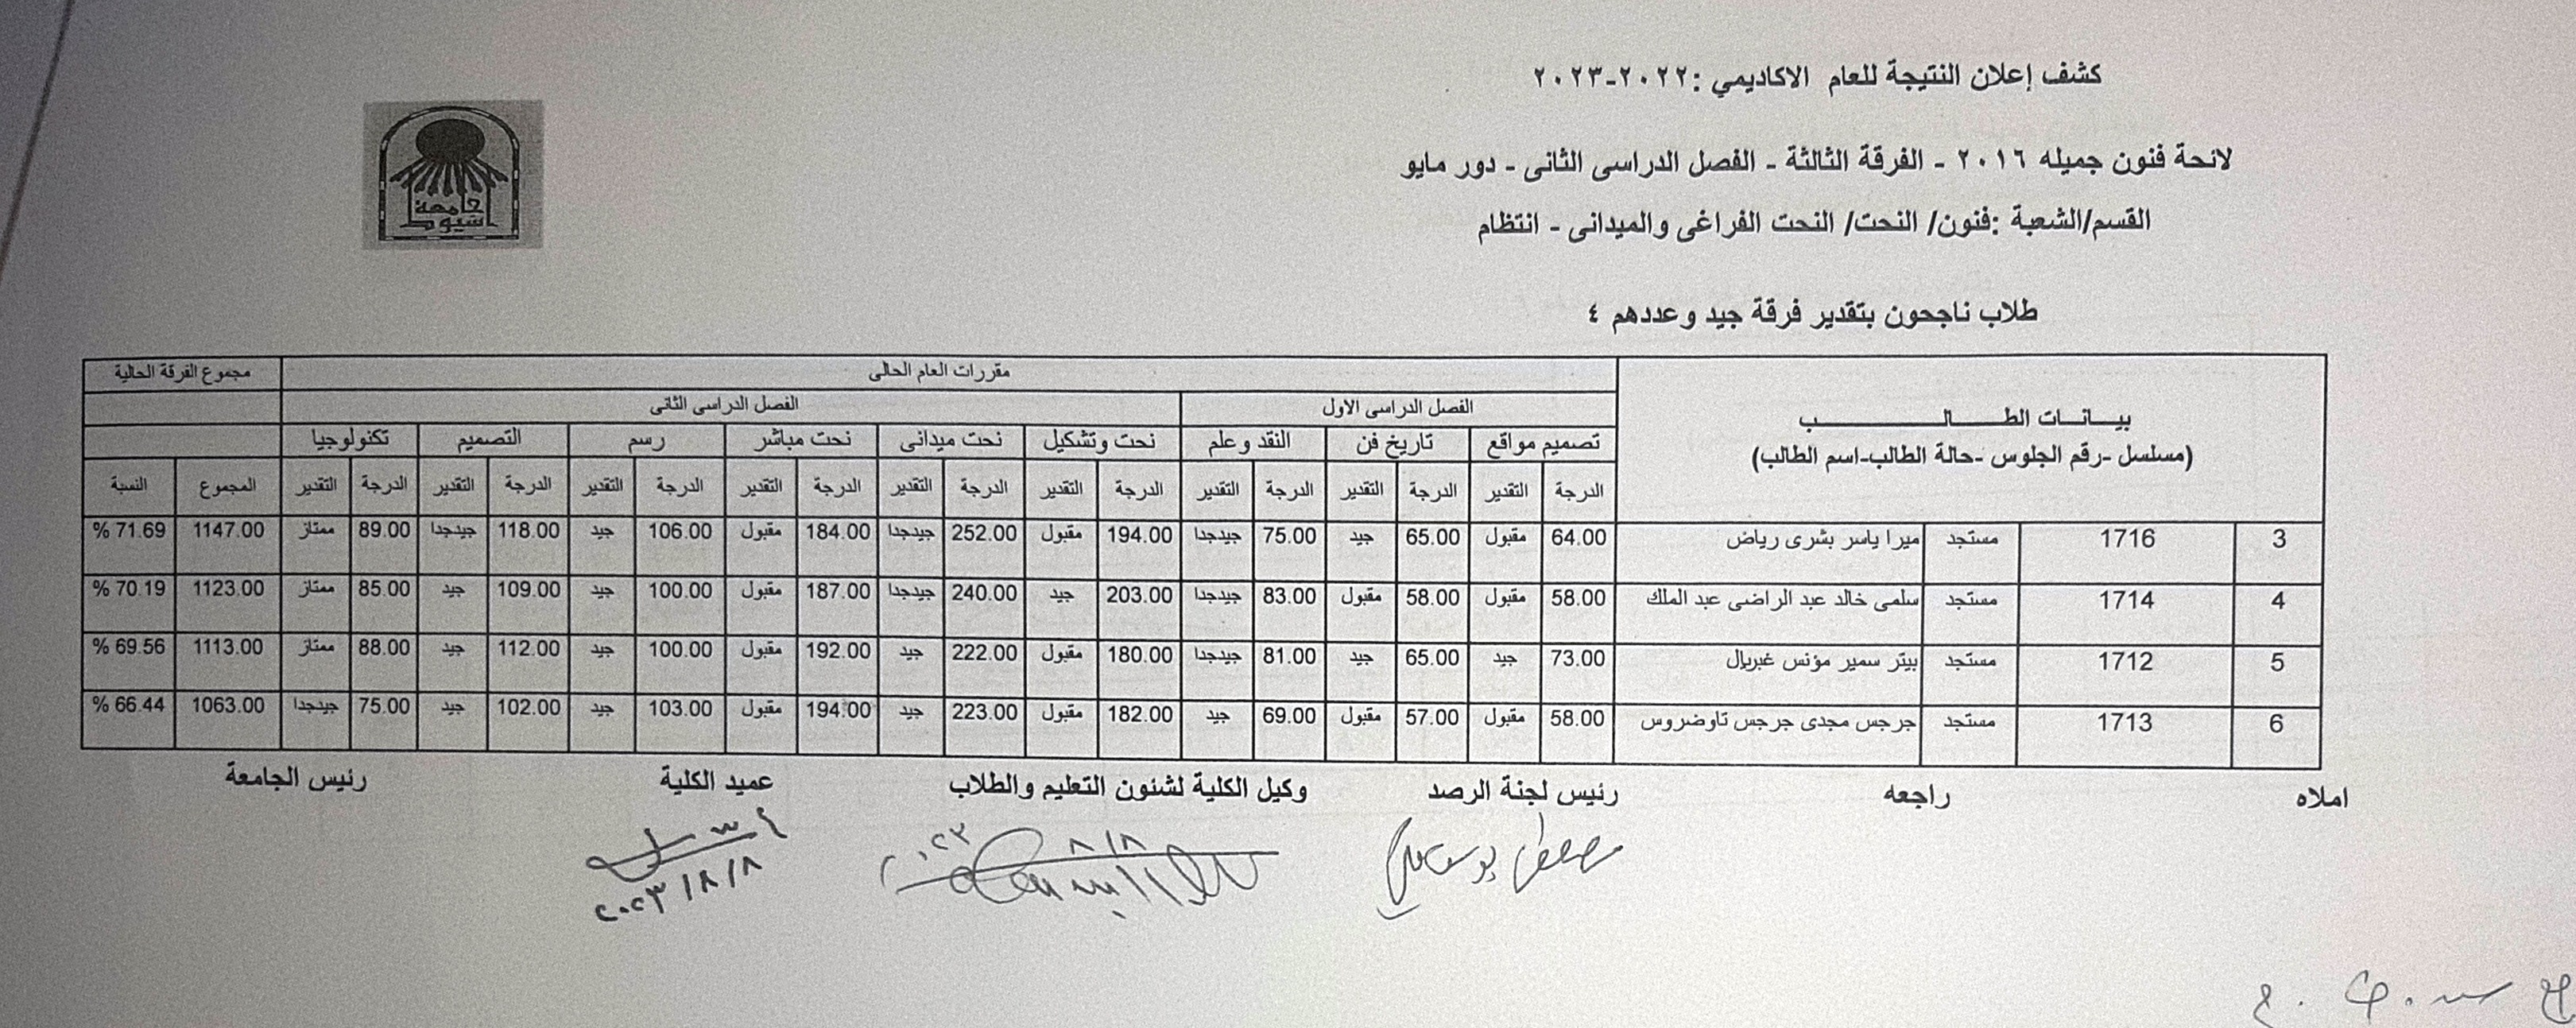 كشف إعلان النتيجة للعام الاكاديمي :٢٠٢٢-٢٠٢٣
جامعة اسيوط
لائحة فنون جميله ٢٠١٦ - الفرقة الثالثة - الفصل الدراسى الثانى - دور مايو
القسم/الشعبة :فنون/ النحت/ النحت الفراغى والميدانى - انتظام
طلاب ناجحون بتقدير فرقة جيد وعددهم ٤
بيـــانـــات الطـــــــالـــــــــــب مقررات العام الحالى مجموع الفرقة الحالية
(مسلسل -رقم الجلوس -حالة الطالب-اسم الطالب) الفصل الدراسى الاول الفصل الدراسى الثانى
تصميم مواقع تاريخ فن النقد وعلم نحت وتشكيل نحت ميدانى نحت مباشر رسم التصميم تكنولوجيا
الدرجة التقدير الدرجة التقدير الدرجة التقدير الدرجة التقدير الدرجة التقدير الدرجة التقدير الدرجة التقدير الدرجة التقدير الدرجة التقدير المجموع النسبة
3 1716 مستجد ميرا ياسر بشرى رياض 64.00 مقبول 65.00 جيد 75.00 جيدجدا 194.00 مقبول 252.00 جيدجدا 184.00 مقبول 106.00 جيد 118.00 جيدجدا 89.00 ممتاز 1147.00 71.69 %
4 1714 مستجد سلمى خالد عبد الراضى عبد الملك 58.00 مقبول 58.00 مقبول 83.00 جيدجدا 203.00 جيد 240.00 جيدجدا 187.00 مقبول 100.00 جيد 109.00 جيد 85.00 ممتاز 1123.00 70.19 %
5 1712 مستجد بيتر سمير مؤنس غبريال 73.00 جيد 65.00 جيد 81.00 جيدجدا 180.00 مقبول 222.00 جيد 192.00 مقبول 100.00 جيد 112.00 جيد 88.00 ممتاز 1113.00 69.56 %
6 1713 مستجد جرجس مجدى جرجس تاوضروس 58.00 مقبول 57.00 مقبول 69.00 جيد 182.00 مقبول 223.00 جيد 194.00 مقبول 103.00 جيد 102.00 جيد 75.00 جيدجدا 1063.00 66.44 %
املاه راجعه رئيس لجنة الرصد وكيل الكلية لشئون التعليم والطلاب عميد الكلية رئيس الجامعة
٨/٨ ٢٠٢٣
٢٠٢٣/٨/٨